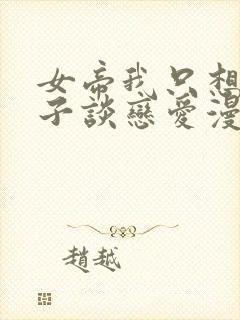 女帝我只想
子談戀愛漫
趙越